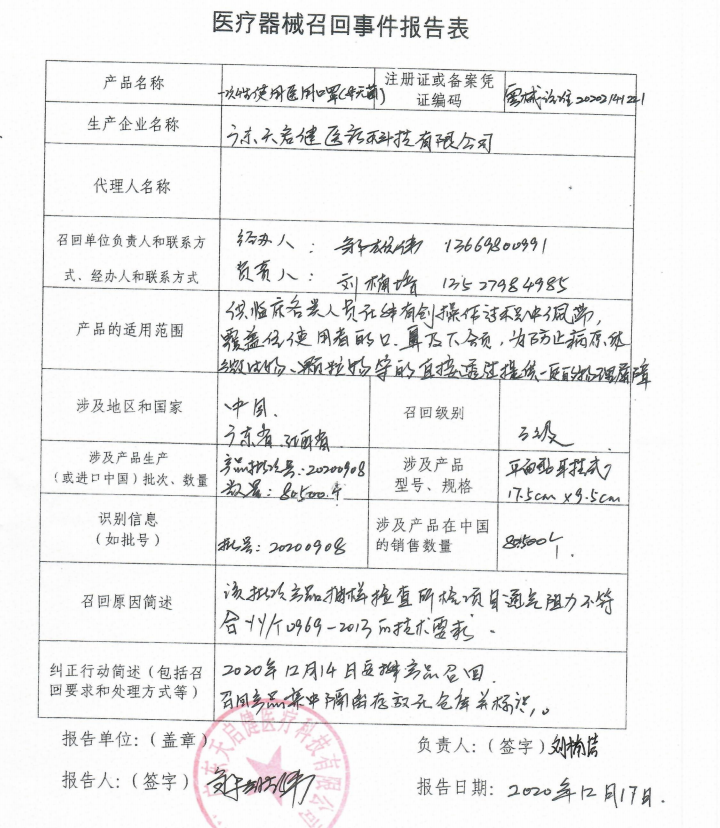 医疗器械召回事件报告表
产品名称
一次性使用医用口罩(非无菌)
注册证或备案凭
证编码
粤械注准20202141221
生产企业名称
广东天启健医疗科技有限公司
代理人名称
召回单位负责人和联系方
式、经办人和联系方式
经办人: 13669800991
负责人: 刘楠培 13527984985
产品的适用范围
供临床各类人员在非有创操作过程中佩带,
覆盖住使用者的口、鼻及下颌,为防止病原体
微生物、颗粒物等的直接透过提供一定的物理屏障
涉及地区和国家
中国.
广东省 江西省
召回级别
三级
涉及产品生产
(或进口中国)批次、数量
产品批次号:20200908
数量:80500个
涉及产品
型号、规格
平面型耳挂式
17.5cm x 9.5cm
识别信息
(如批号)
批号:20200908
涉及产品在中国
的销售数量
80500个
召回原因简述
该批次产品抽样检查所检项目通气阻力不符
合YY/T0969-2013的技术要求.
纠正行动简述(包括召
回要求和处理方式等)
2020年12月14日安排产品召回.
召回产品集中隔离存放于仓库并标识.
报告单位:(盖章)
负责人:(签字)刘楠培
报告人:(签字)
报告日期:2020年12月17日.
广东天启健医疗科技有限公司